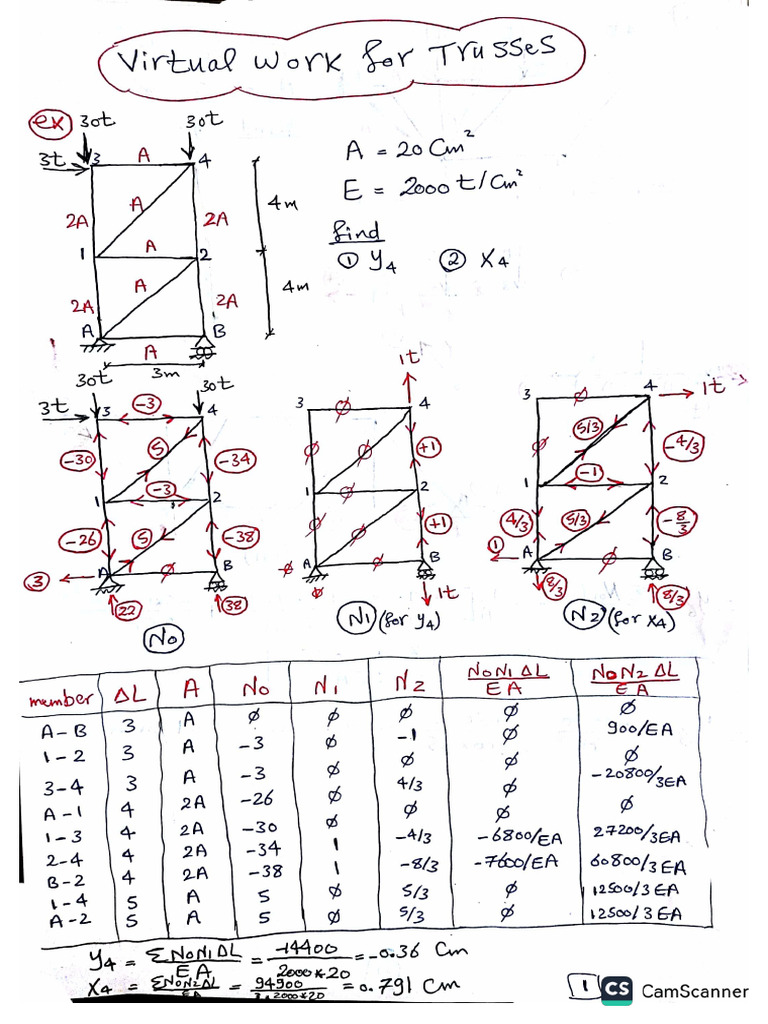 Virtual Work for Trusses
ex 30t 30t
3t 3 A 4
A = 20 Cm²
E = 2000 t/Cm²
2A A 2A 4m
find
① Y4 ② X4
1 A 2
2A A 2A 4m
A B
A
3m
30t 30t 1t
3t 3 -3 4 3 ∅ 4 3 ∅ 4 1t
-30 5 -34 ∅ ∅ +1 ∅ 5/3 -4/3
1 -3 2 1 ∅ 2 1 -1 2
-26 5 -38 ∅ ∅ +1 4/3 5/3 -8/3
3 A ∅ B ∅ A ∅ B 1 A ∅ B
22 38 ∅ 1t 8/3 8/3
N0 N1 (for Y4) N2 (for X4)
member ΔL A N0 N1 N2 N0N1ΔL/EA N0N2ΔL/EA
A-B 3 A ∅ ∅ ∅ ∅ ∅
1-2 3 A -3 ∅ -1 ∅ 900/EA
3-4 3 A -3 ∅ ∅ ∅ ∅
A-1 4 2A -26 ∅ 4/3 ∅ -20800/3EA
1-3 4 2A -30 ∅ ∅ ∅ ∅
2-4 4 2A -34 1 -4/3 -6800/EA 27200/3EA
B-2 4 2A -38 1 -8/3 -7600/EA 60800/3EA
1-4 5 A 5 ∅ 5/3 ∅ 12500/3EA
A-2 5 A 5 ∅ 5/3 ∅ 12500/3EA
Y4 = ΣN0N1ΔL/EA = -14400/2000*20 = -0.36 Cm
X4 = ΣN0N2ΔL/EA = 94900/3*2000*20 = 0.791 Cm
1 CS CamScanner